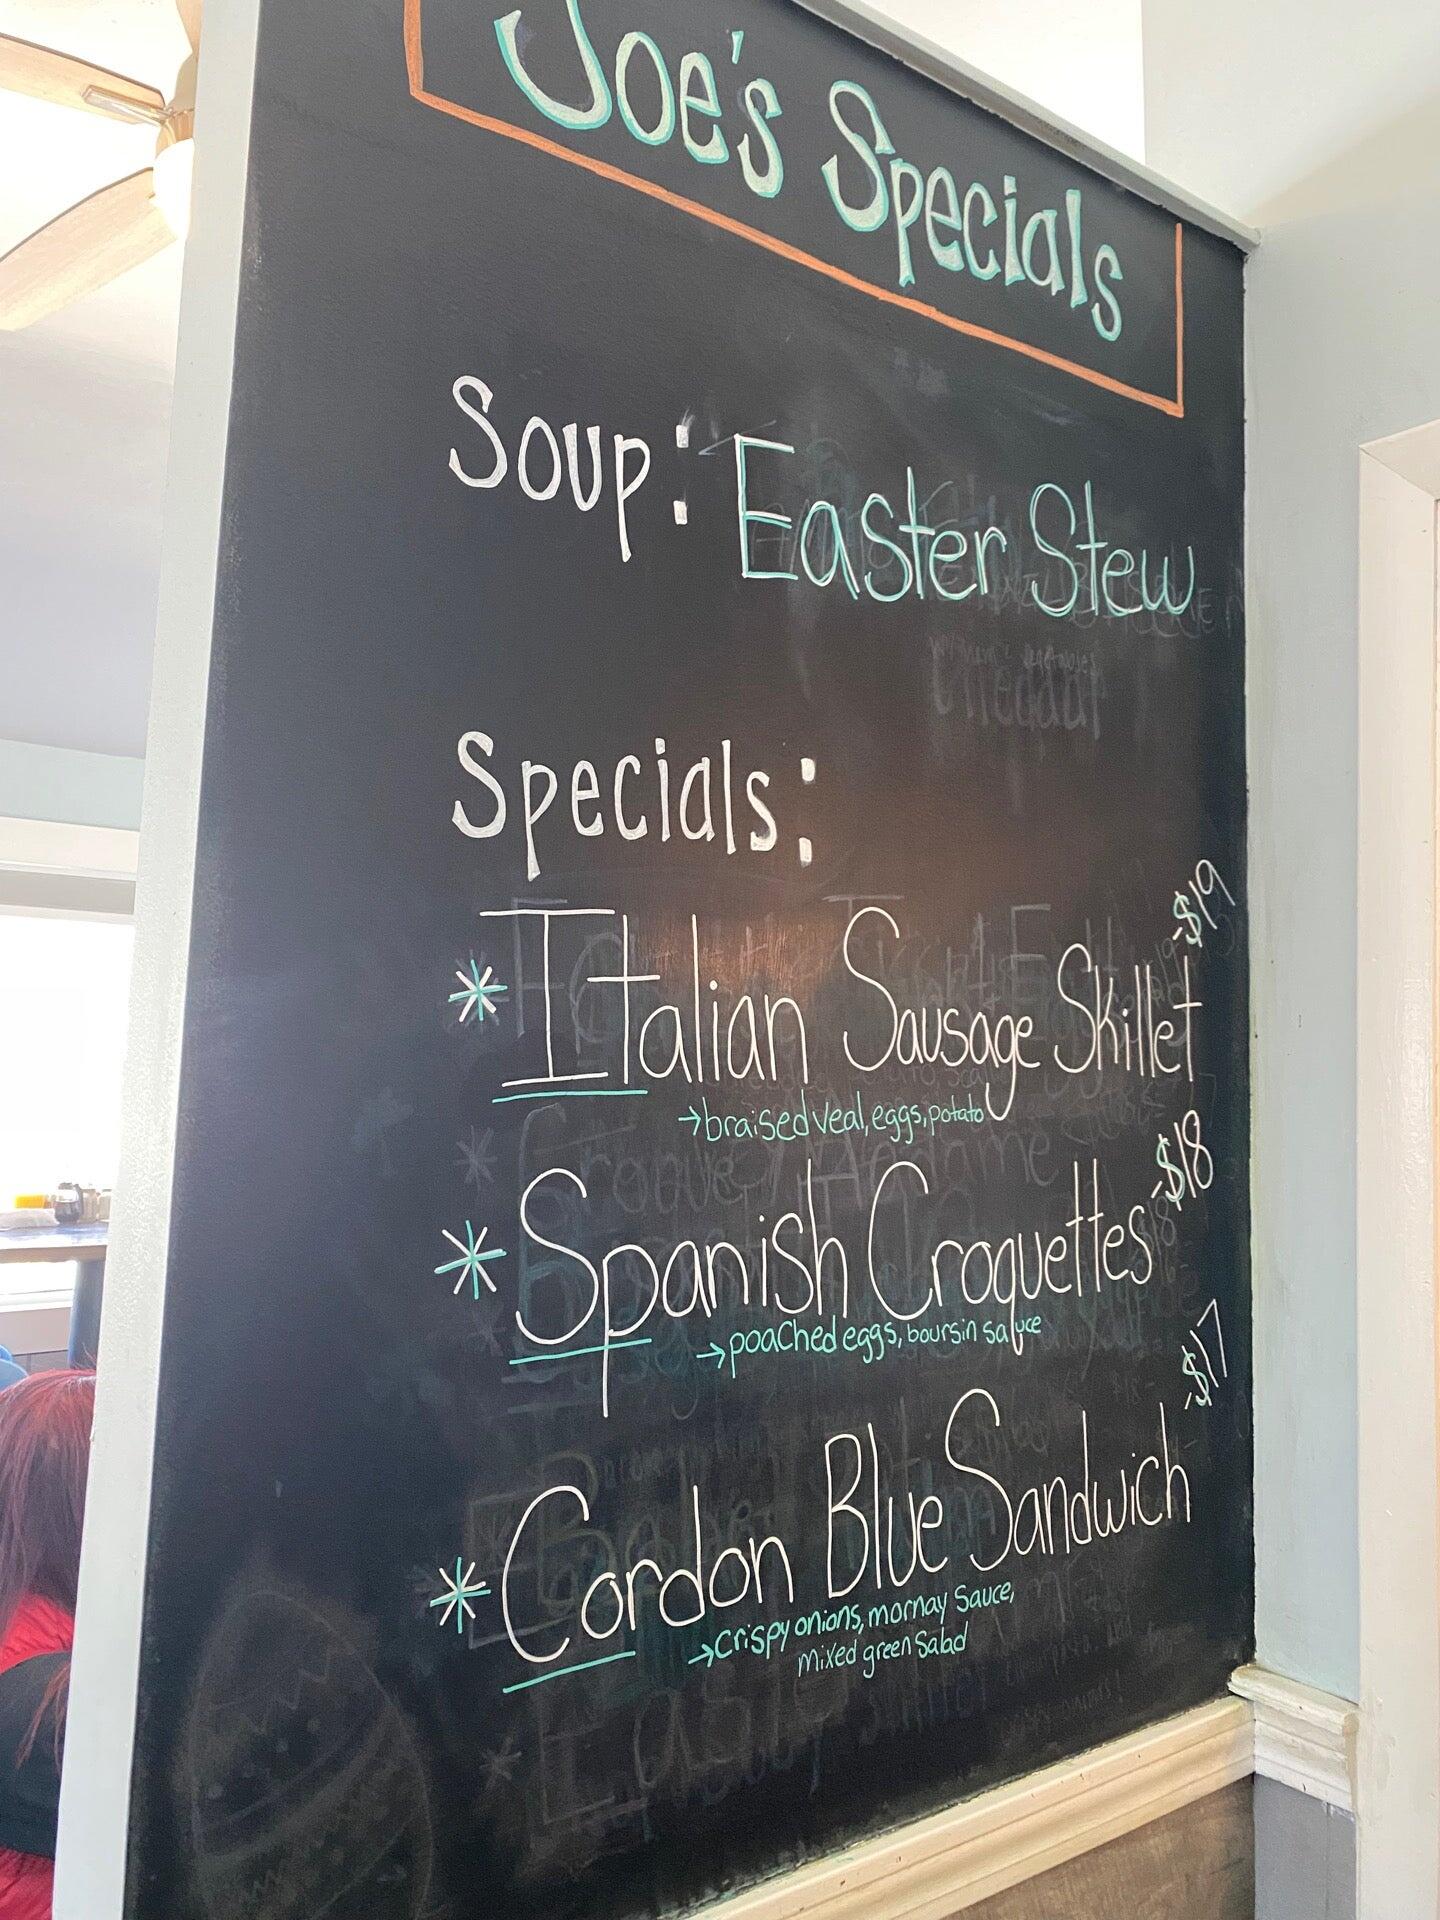 Joe's Specials
Soup: Easter Stew
Specials:
* Italian Sausage Skillet -$19
→braised veal, eggs, potato
* Spanish Croquettes -$18
→poached eggs, boursin sauce
* Cordon Blue Sandwich -$17
→crispy onions, mornay sauce,
mixed green salad